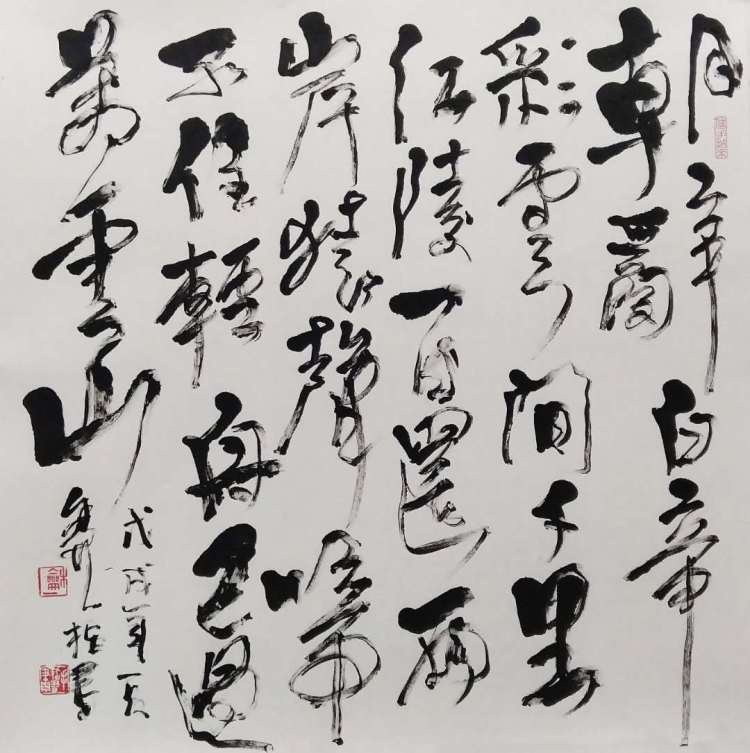 朝辭白帝
彩雲間千里
江陵一日還兩
岸猿聲啼
不住輕舟已過
萬重山
戊戌年夏
指墨